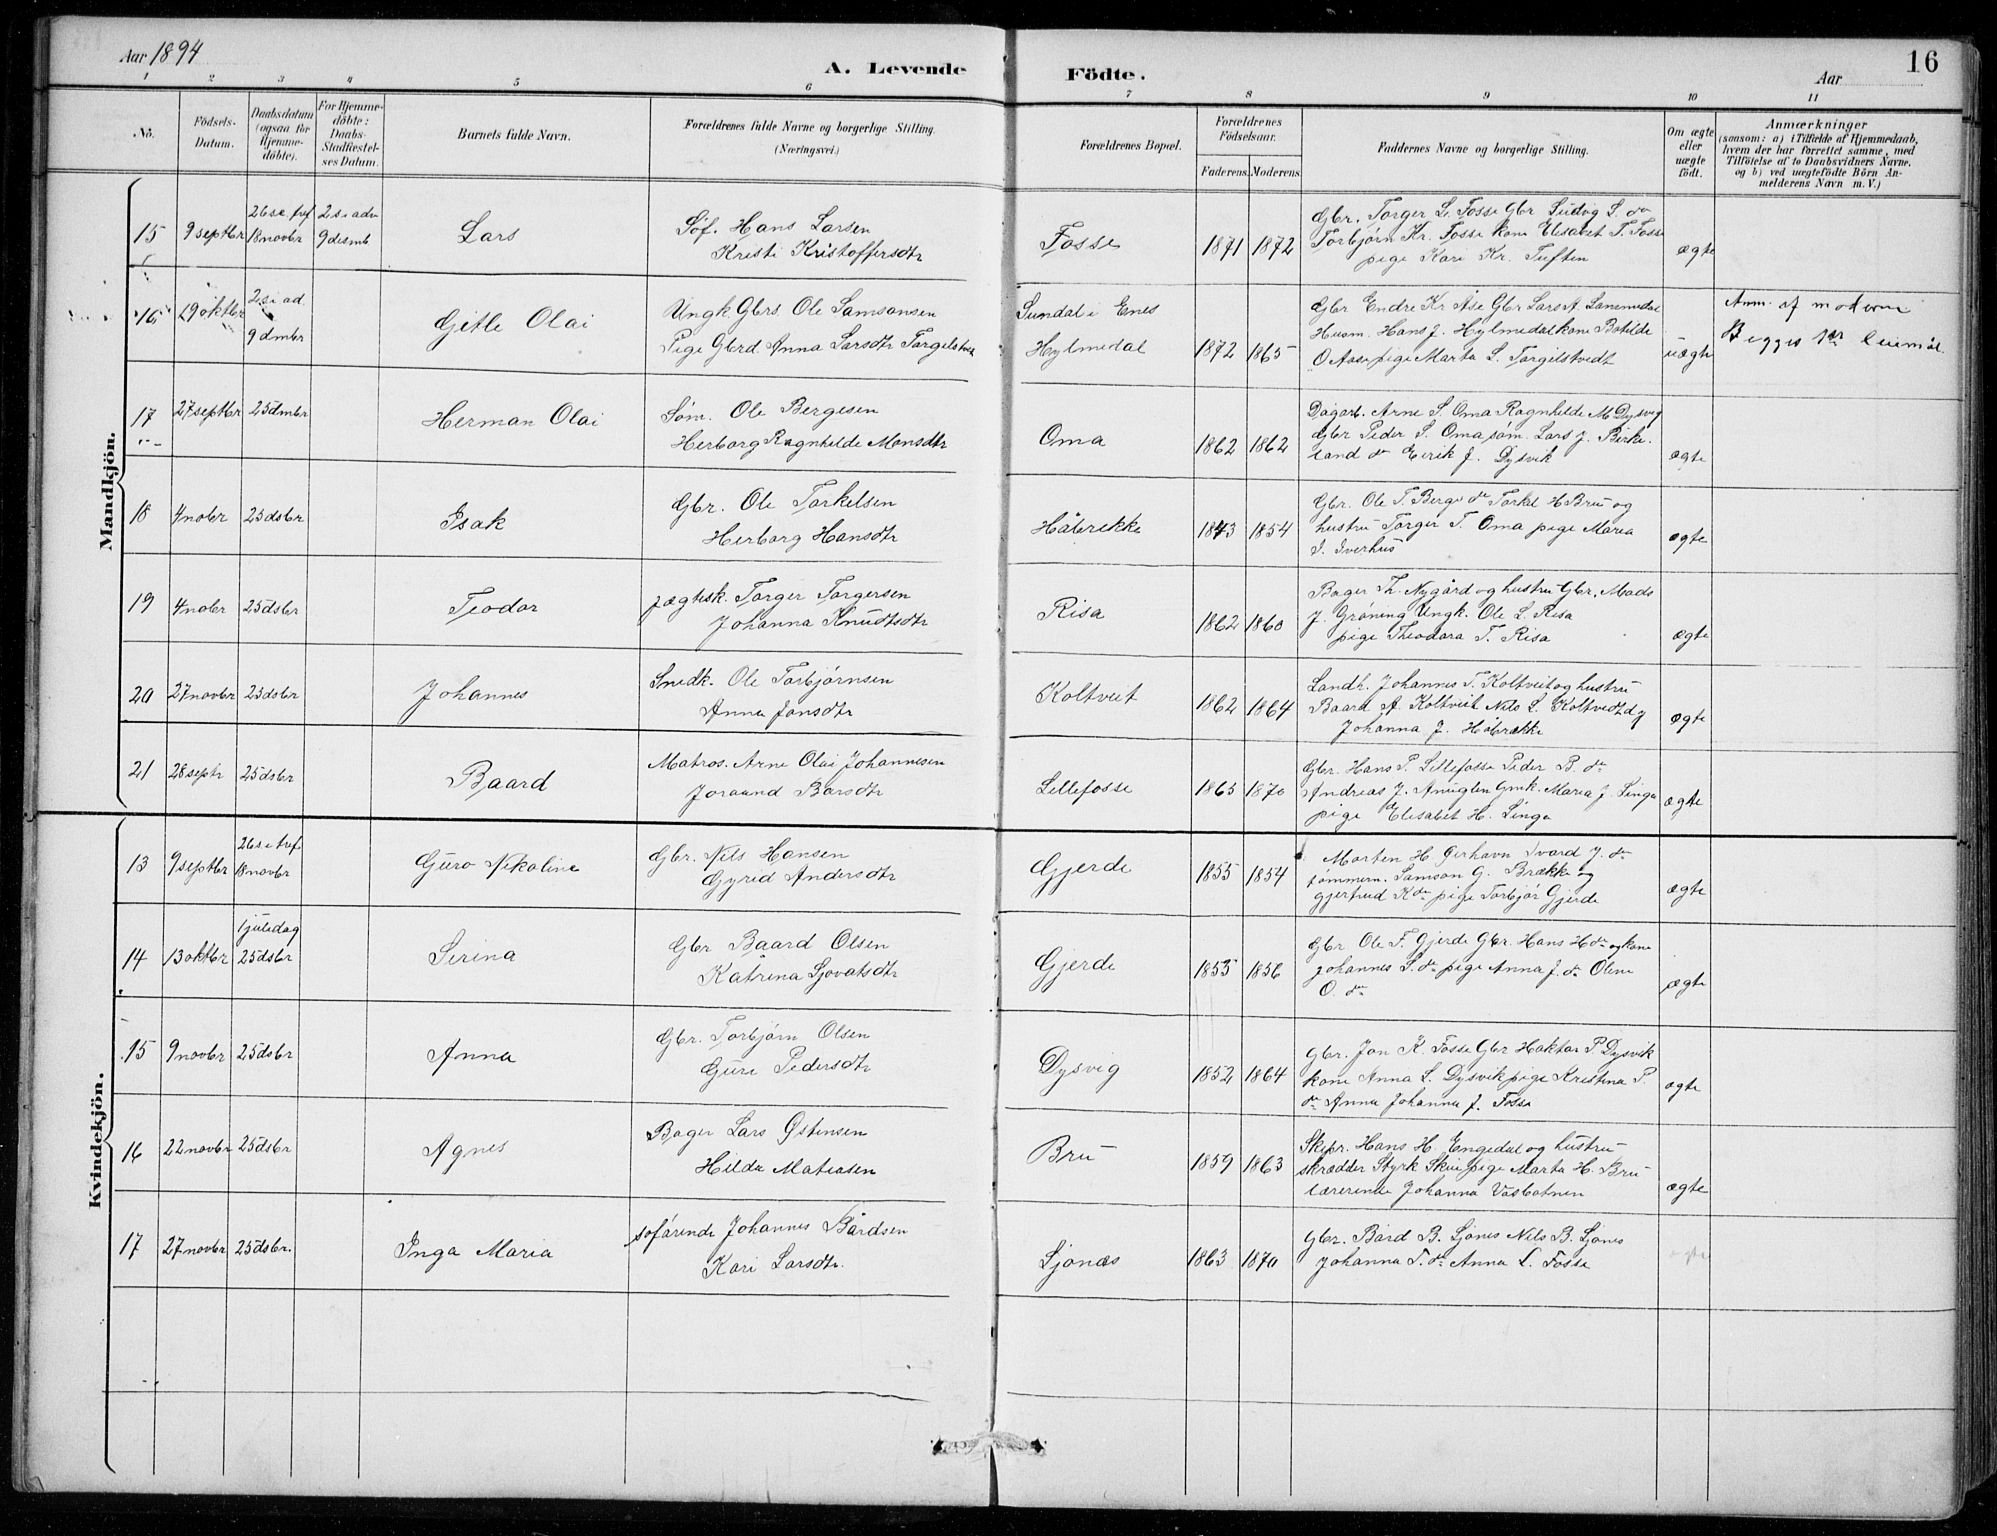 Aar 1894
A. Levende Födte.
Aar
16
1 2 3 4 5 6 7 8 9 10 11
No.
Födsels-Datum.
Daabsdatum (ogsaa for Hjemme-döbte).
For Hjemme-döbte: Daabs-Stadfæstel-ses Datum.
Barnets fulde Navn.
Forældrenes fulde Navne og borgerlige Stilling. (Næringsvei.)
Forældrenes Bopæl.
Forældrenes Födselsaar.
Faderens. Moderens.
Faddernes Navne og borgerlige Stilling.
Om ægte eller uægte födt.
Anmærkninger
(saasom: a) i Tilfælde af Hjemmedaab, hvem der har forrettet samme, med Tilföielse af to Daabsvidners Navne. og b) ved uægtefödte Börn An-melderens Navn m. V.)
Mandkjön.
15 9 septbr 26 s e tref 18 novbr 2 s i adv 9 desmb Lars
Søf. Hans Larsen
Kristi Kristoffersdtr
Fosse 1871 1872
Gbr. Torger L. Fosse Gbr Ludvg L. do
Torbjørn Kr. Fosse kone Elisabet T. Fosse
pige Kari Kr. Tuften
ægte
16 29 oktbr 2 s i ad. 9 dmbr Gitle Olai
Ungk. Gbrs. Ole Samsonsen
Pige Gbrd. Anna Larsdtr Torgilstvedt
Sundal i Enes
Hylmedal 1872 1865
Gbr Endre Kr Åse Gbr Lars A.
Husm. Hans J. Hylmedal kone Botilde
O Aase pige Marta L. Torgilstvedt
uægte
Anm. af moderen
Begges 1ste leiermål.
17 27 septbr 25 dmbr Herman Olai
Søm. Ole Bergesen
Herborg Ragnhilde Monsdtr
Oma 1862 1862
Dagarb. Arne S. Oma Ragnhilde M Dysvig
Gbr Peder S. Oma søm. Lars J. Birke-
land do Eirik J. Dysvik
ægte
18 4 nobr 25 dsbr Isak
Gbr. Ole Torkelsen
Herborg Hansdtr
Håbrekke 1843 1854
Gbr. Ole T. Berge do Torkel H Bru og
hustru Torger T. Oma pige Maria
I. Iverhus
ægte
19 4 nobr 25 dsbr Teodor
jægtesk. Torger Torgersen
Johanna Knudtsdtr
Risa 1862 1860
Bager Th. Nygård og hustru Gbr. Mads
J. Grøning Ungk. Ole L. Risa
pige Theodora T. Risa
ægte
20 27 novbr 25 dsbr Johannes
Snedk. Ole Torbjørnsen
Anna Jonsdtr
Koltveit 1862 1864
Landh. Johannes T. Koltveit og hustru
Baard A. Koltveit Nils L. Koltvedt og
Johanna J. Håbrække
ægte
21 28 septr 25 dsbr Baard
Matros. Arne Olai Johannesen
Joraand Barsdtr
Lillefosse 1865 1870
Gbr. Hans P. Lillefosse Peder B. do
Andreas J. Anuglen Gmk. Maria J. Linga
pige Elisabet H. Linga
ægte
Kvindekjön.
13 9 septbr 26 s e tref 18 novbr Guro Nikoline
Gbr. Nils Hansen
Gyrid Andersdtr
Gjerde 1855 1854
Morten H. Gerhavn Ivard J. do
tømmerm. Samson G. Brække og
gjertrud K do pige Torbjør Gjerde
ægte
14 13 oktbr 1 juledag 25 dsbr Serina
Gbr Baard Olsen
Katrina Sjovatsdtr
Gjerde 1855 1856
Gbr Ole F. Gjerde Gbr. Hans H do og kone
Johannes S. do pige Anna J. do Oline
O. do
ægte
15 9 novbr 25 dsbr Anna
Gbr. Torbjørn Olsen
Guri Pedersdtr
Dysvig 1852 1864
Gbr. Jon K. Fosse Gbr Haktor P. Dysvik
kone Anna L. Dysvik pige Kristina P.
do Anna Johanna J. Fosse
ægte
16 22 novbr 25 dsbr Agnes
Bager Lars Østensen
Hilda Matiasen
Bru 1859 1863
Skipr. Hans H. Engedal og hustru
skrædder Styrk Skiie pige Marta H. Bru
lærerinde Johanna Vasbotnen
ægte
17 27 novbr 25 dsbr. Inga Maria
søfarende Johannes Bårdsen
Kari Larsdtr.
Sjonæs 1863 1870
Gbr. Bård B. Sjones Nils B. Sjones
Johanna T. do Anna L. Fosse
ægte